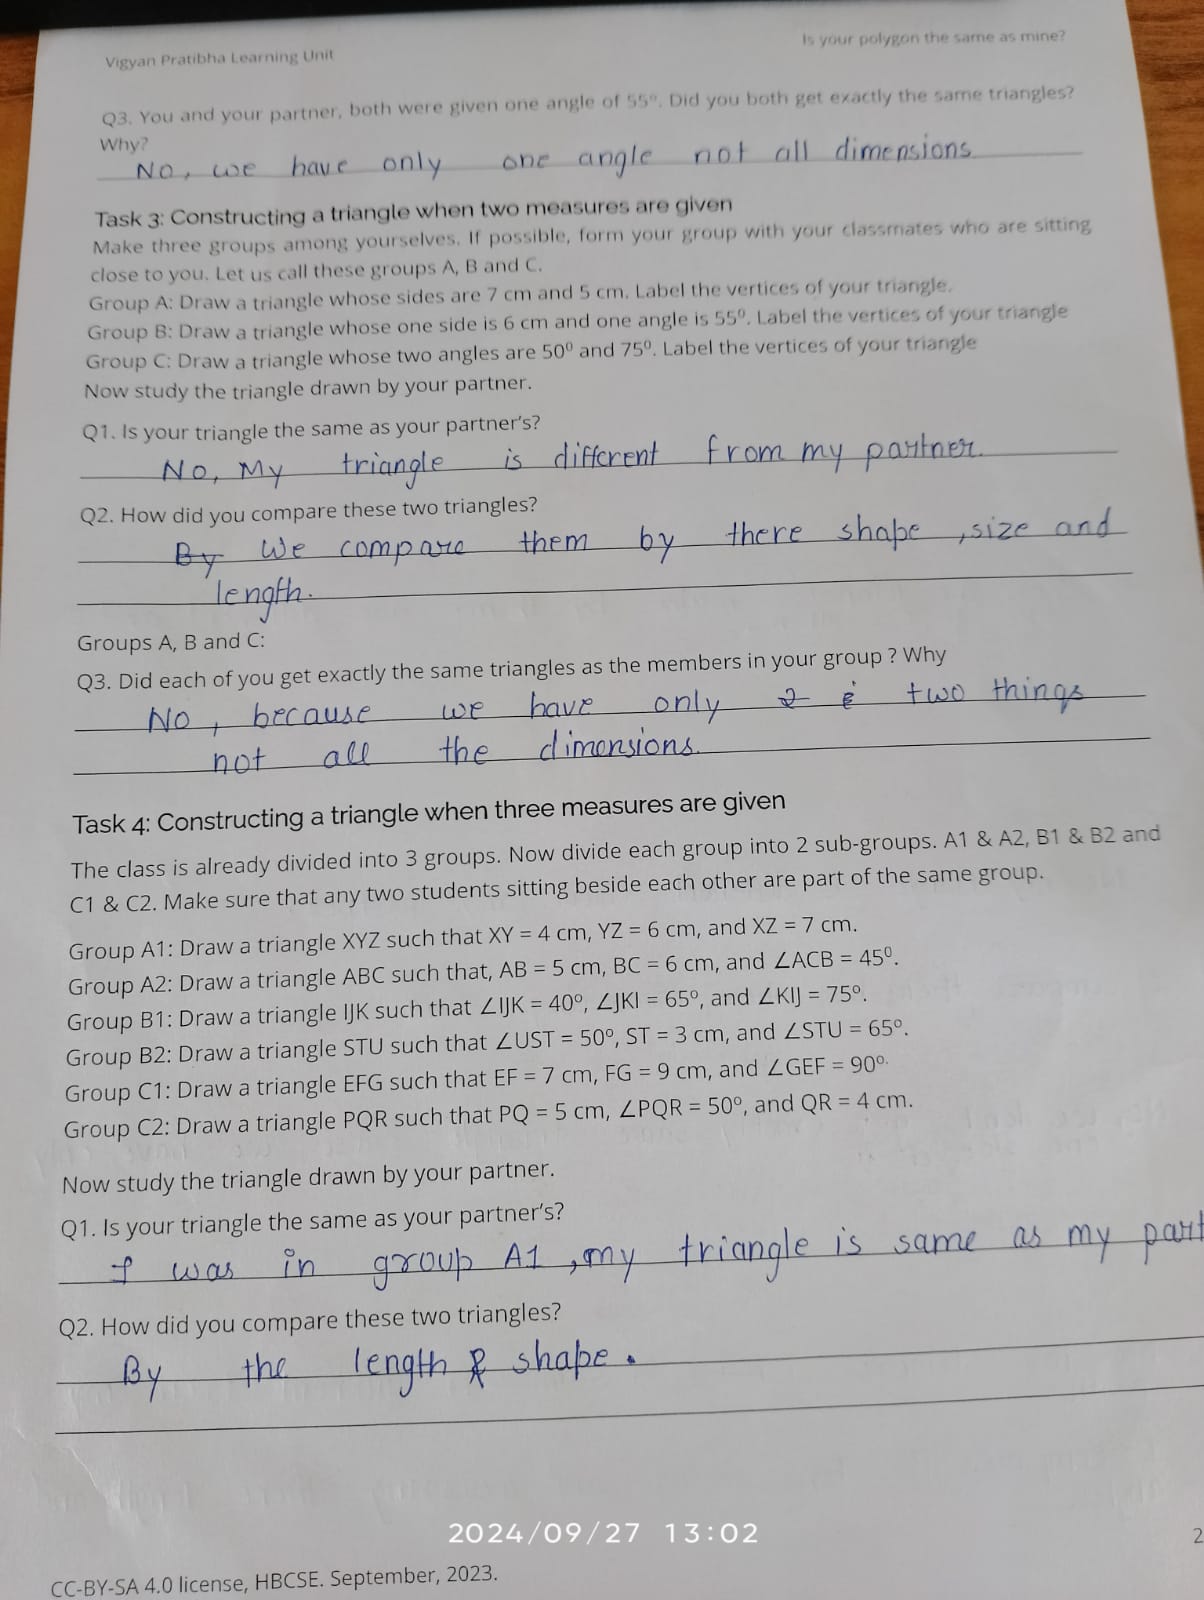 Vigyan Pratibha Learning Unit
Is your polygon the same as mine?
Q3. You and your partner, both were given one angle of 55°. Did you both get exactly the same triangles?
Why?
No, we have only one angle not all dimensions
Task 3: Constructing a triangle when two measures are given
Make three groups among yourselves. If possible, form your group with your classmates who are sitting
close to you. Let us call these groups A, B and C.
Group A: Draw a triangle whose sides are 7 cm and 5 cm. Label the vertices of your triangle.
Group B: Draw a triangle whose one side is 6 cm and one angle is 55⁰. Label the vertices of your triangle
Group C: Draw a triangle whose two angles are 50⁰ and 75⁰. Label the vertices of your triangle
Now study the triangle drawn by your partner.
Q1. Is your triangle the same as your partner's?
No, My triangle is different from my partner.
Q2. How did you compare these two triangles?
By We compare them by there shape ,size and
length.
Groups A, B and C:
Q3. Did each of you get exactly the same triangles as the members in your group ? Why
No, because we have only 2 two things
not all the dimensions.
Task 4: Constructing a triangle when three measures are given
The class is already divided into 3 groups. Now divide each group into 2 sub-groups. A1 & A2, B1 & B2 and
C1 & C2. Make sure that any two students sitting beside each other are part of the same group.
Group A1: Draw a triangle XYZ such that XY = 4 cm, YZ = 6 cm, and XZ = 7 cm.
Group A2: Draw a triangle ABC such that, AB = 5 cm, BC = 6 cm, and ∠ACB = 45⁰.
Group B1: Draw a triangle IJK such that ∠IJK = 40⁰, ∠JKI = 65⁰, and ∠KIJ = 75⁰.
Group B2: Draw a triangle STU such that ∠UST = 50⁰, ST = 3 cm, and ∠STU = 65⁰.
Group C1: Draw a triangle EFG such that EF = 7 cm, FG = 9 cm, and ∠GEF = 90⁰.
Group C2: Draw a triangle PQR such that PQ = 5 cm, ∠PQR = 50⁰, and QR = 4 cm.
Now study the triangle drawn by your partner.
Q1. Is your triangle the same as your partner's?
I was in group A1 ,my triangle is same as my part
Q2. How did you compare these two triangles?
By the length & shape.
2024/09/27 13:02
2
CC-BY-SA 4.0 license, HBCSE. September, 2023.